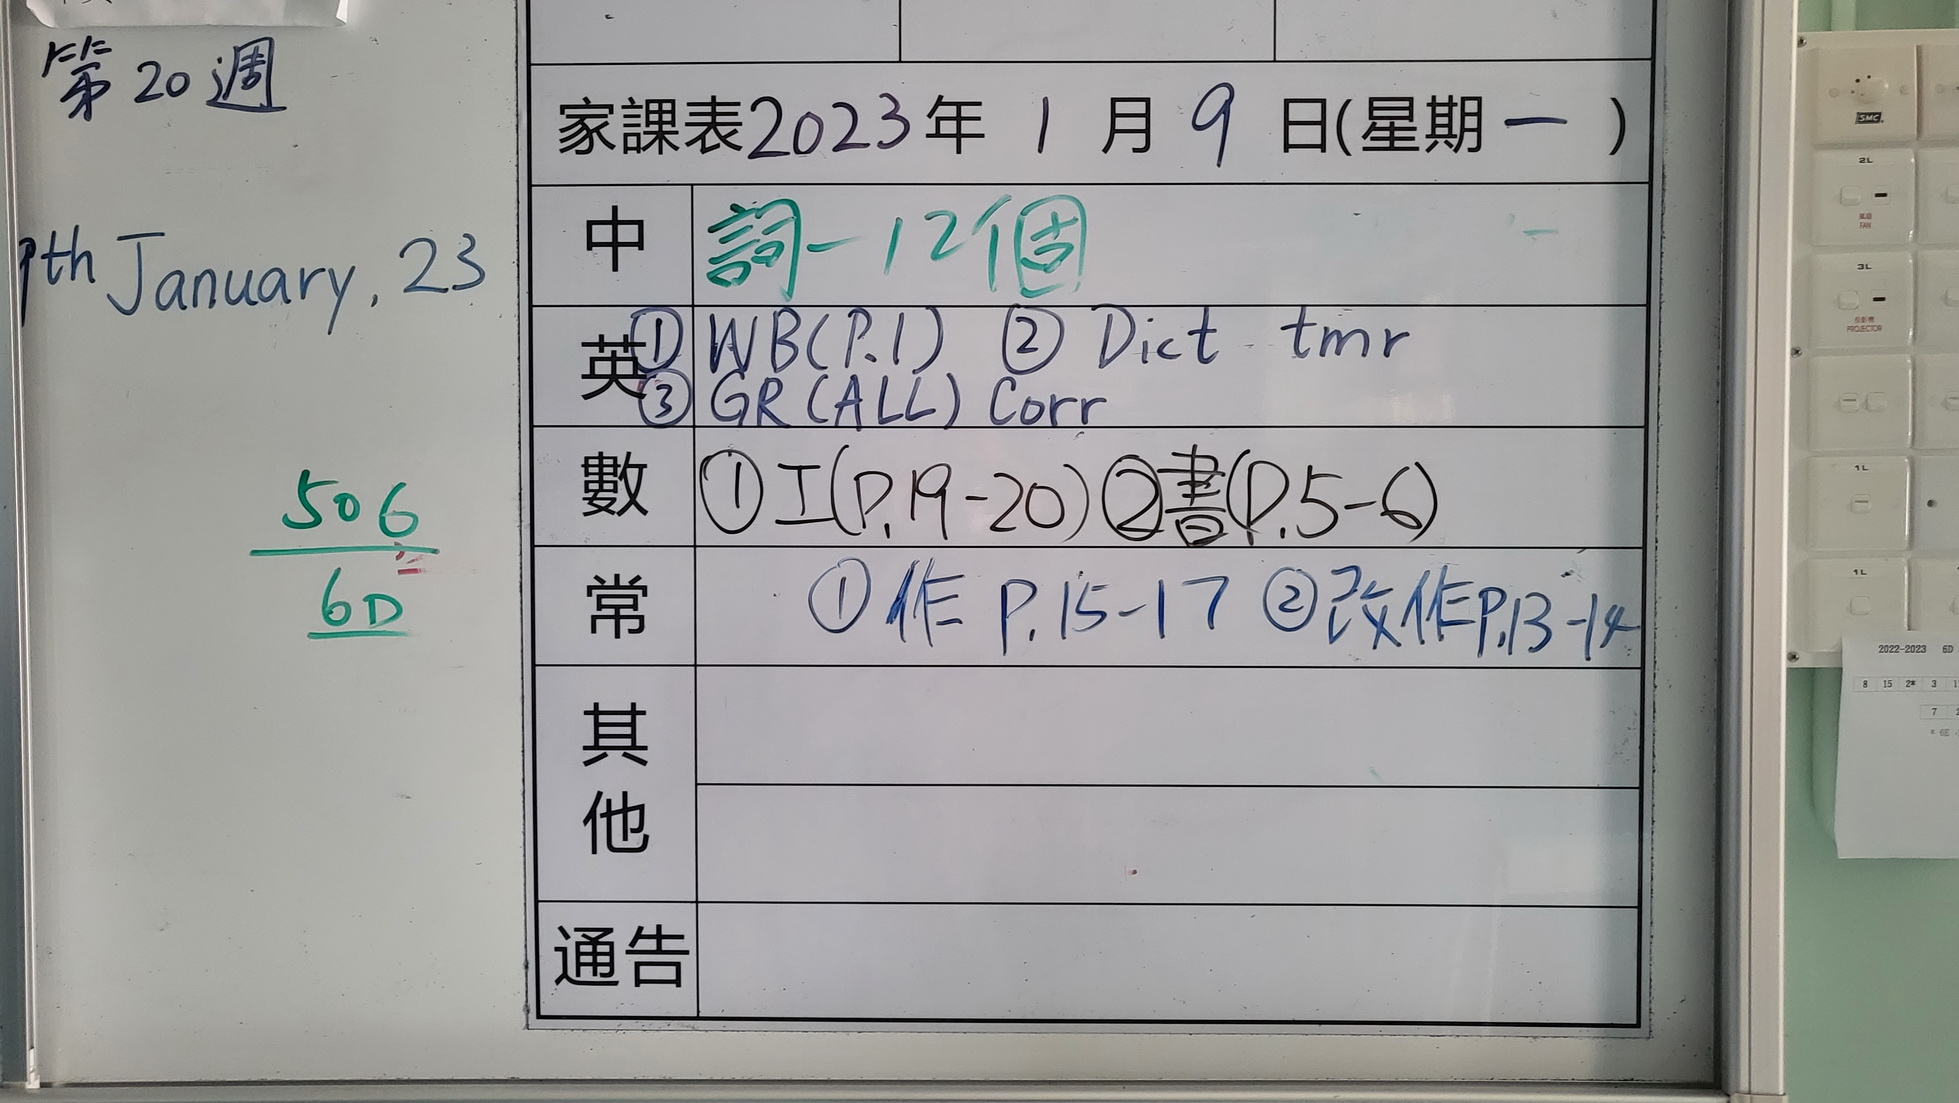 第20週
9th January, 23
506
6D
家課表2023年 1 月 9 日(星期一)
中
詞-12個
英
① WB(P.1) ② Dict tmr
③ GR(ALL) Corr
數
①工(P.19-20)②書(P.5-6)
常
①作 P.15-17 ②改作P.13-14
其
他
通告
SMC
2L
風扇
FAN
3L
投影機
PROJECTOR
1L
1L
2022-2023 6D
8 15 2* 3
7
* 6E